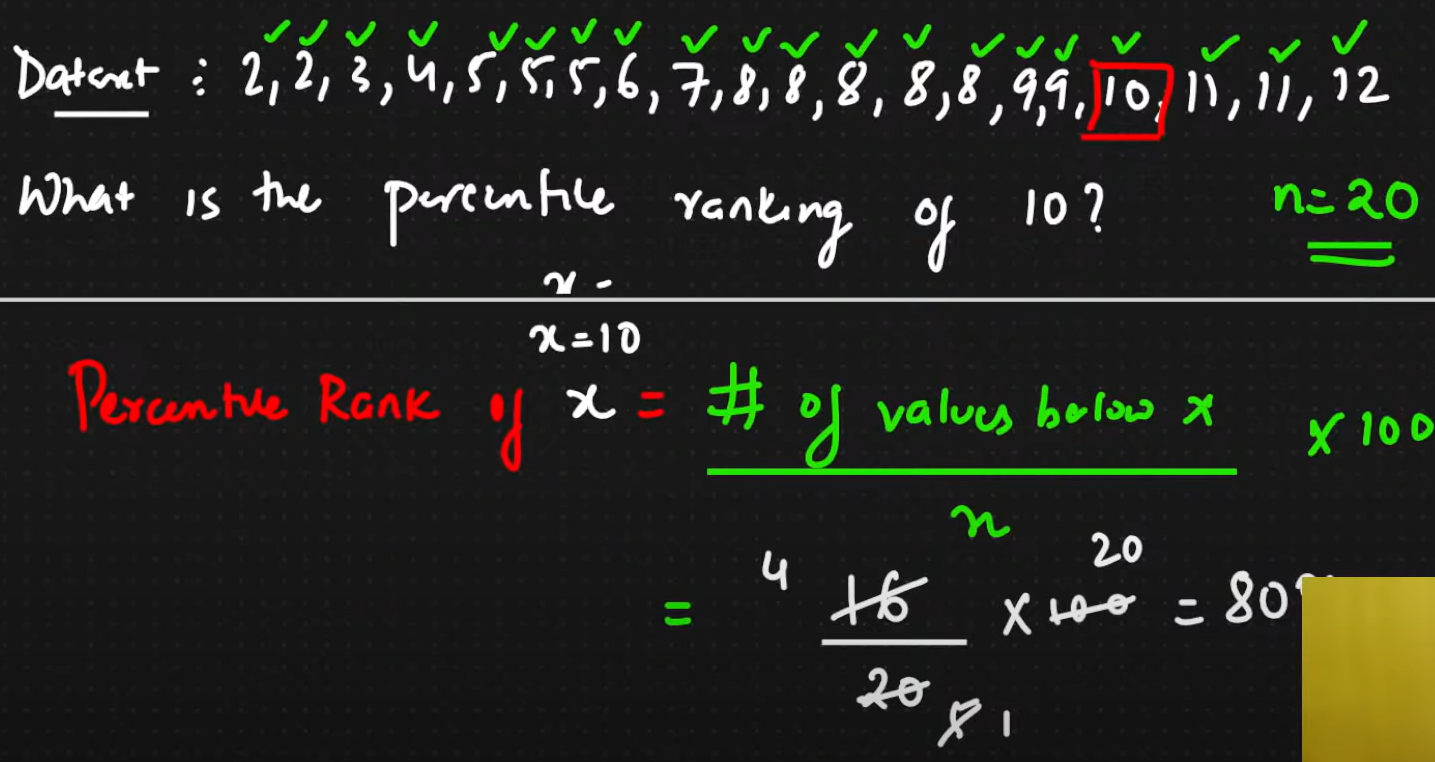 Dataset : 2, 2, 3, 4, 5, 5, 5, 6, 7, 8, 8, 8, 8, 8, 9, 9, 10, 11, 11, 12
What is the percentile ranking of 10? n=20
x -
x=10
Percentile Rank of x = # of values below x × 100
n
= 4 16 × 100 20 = 80
20 5 1